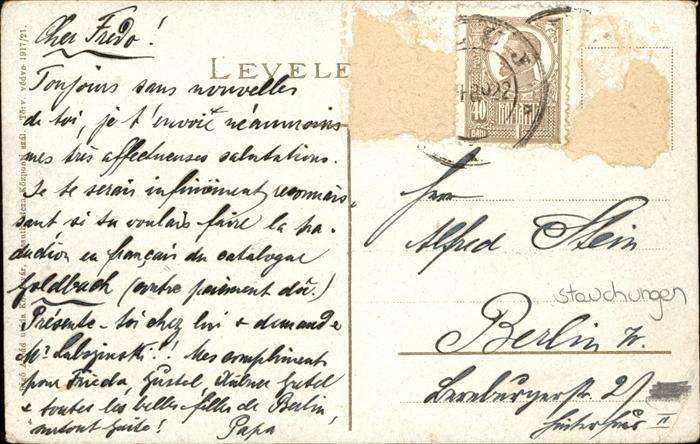 Cher Fredo!
Toujours sans nouvelles
de toi, je t'envoie néanmoins
mes très affectueuses salutations.
Je te serais infiniment reconnais-
sant si tu voulais faire la tra-
duction en français du catalogue
Goldbach (contre paiement dû.)
Présente-toi chez lui & demande
Mr !! Mes compliments
pour Frieda, Gustel, Gretel
& toutes les belles-filles de Berlin,
surtout
Papa
LEVELE
Törv. védve 1917/21.
40
BANI
Herr
Alfred Stein
stauchungen
Berlin W.
Luneburgerstr. 21
II